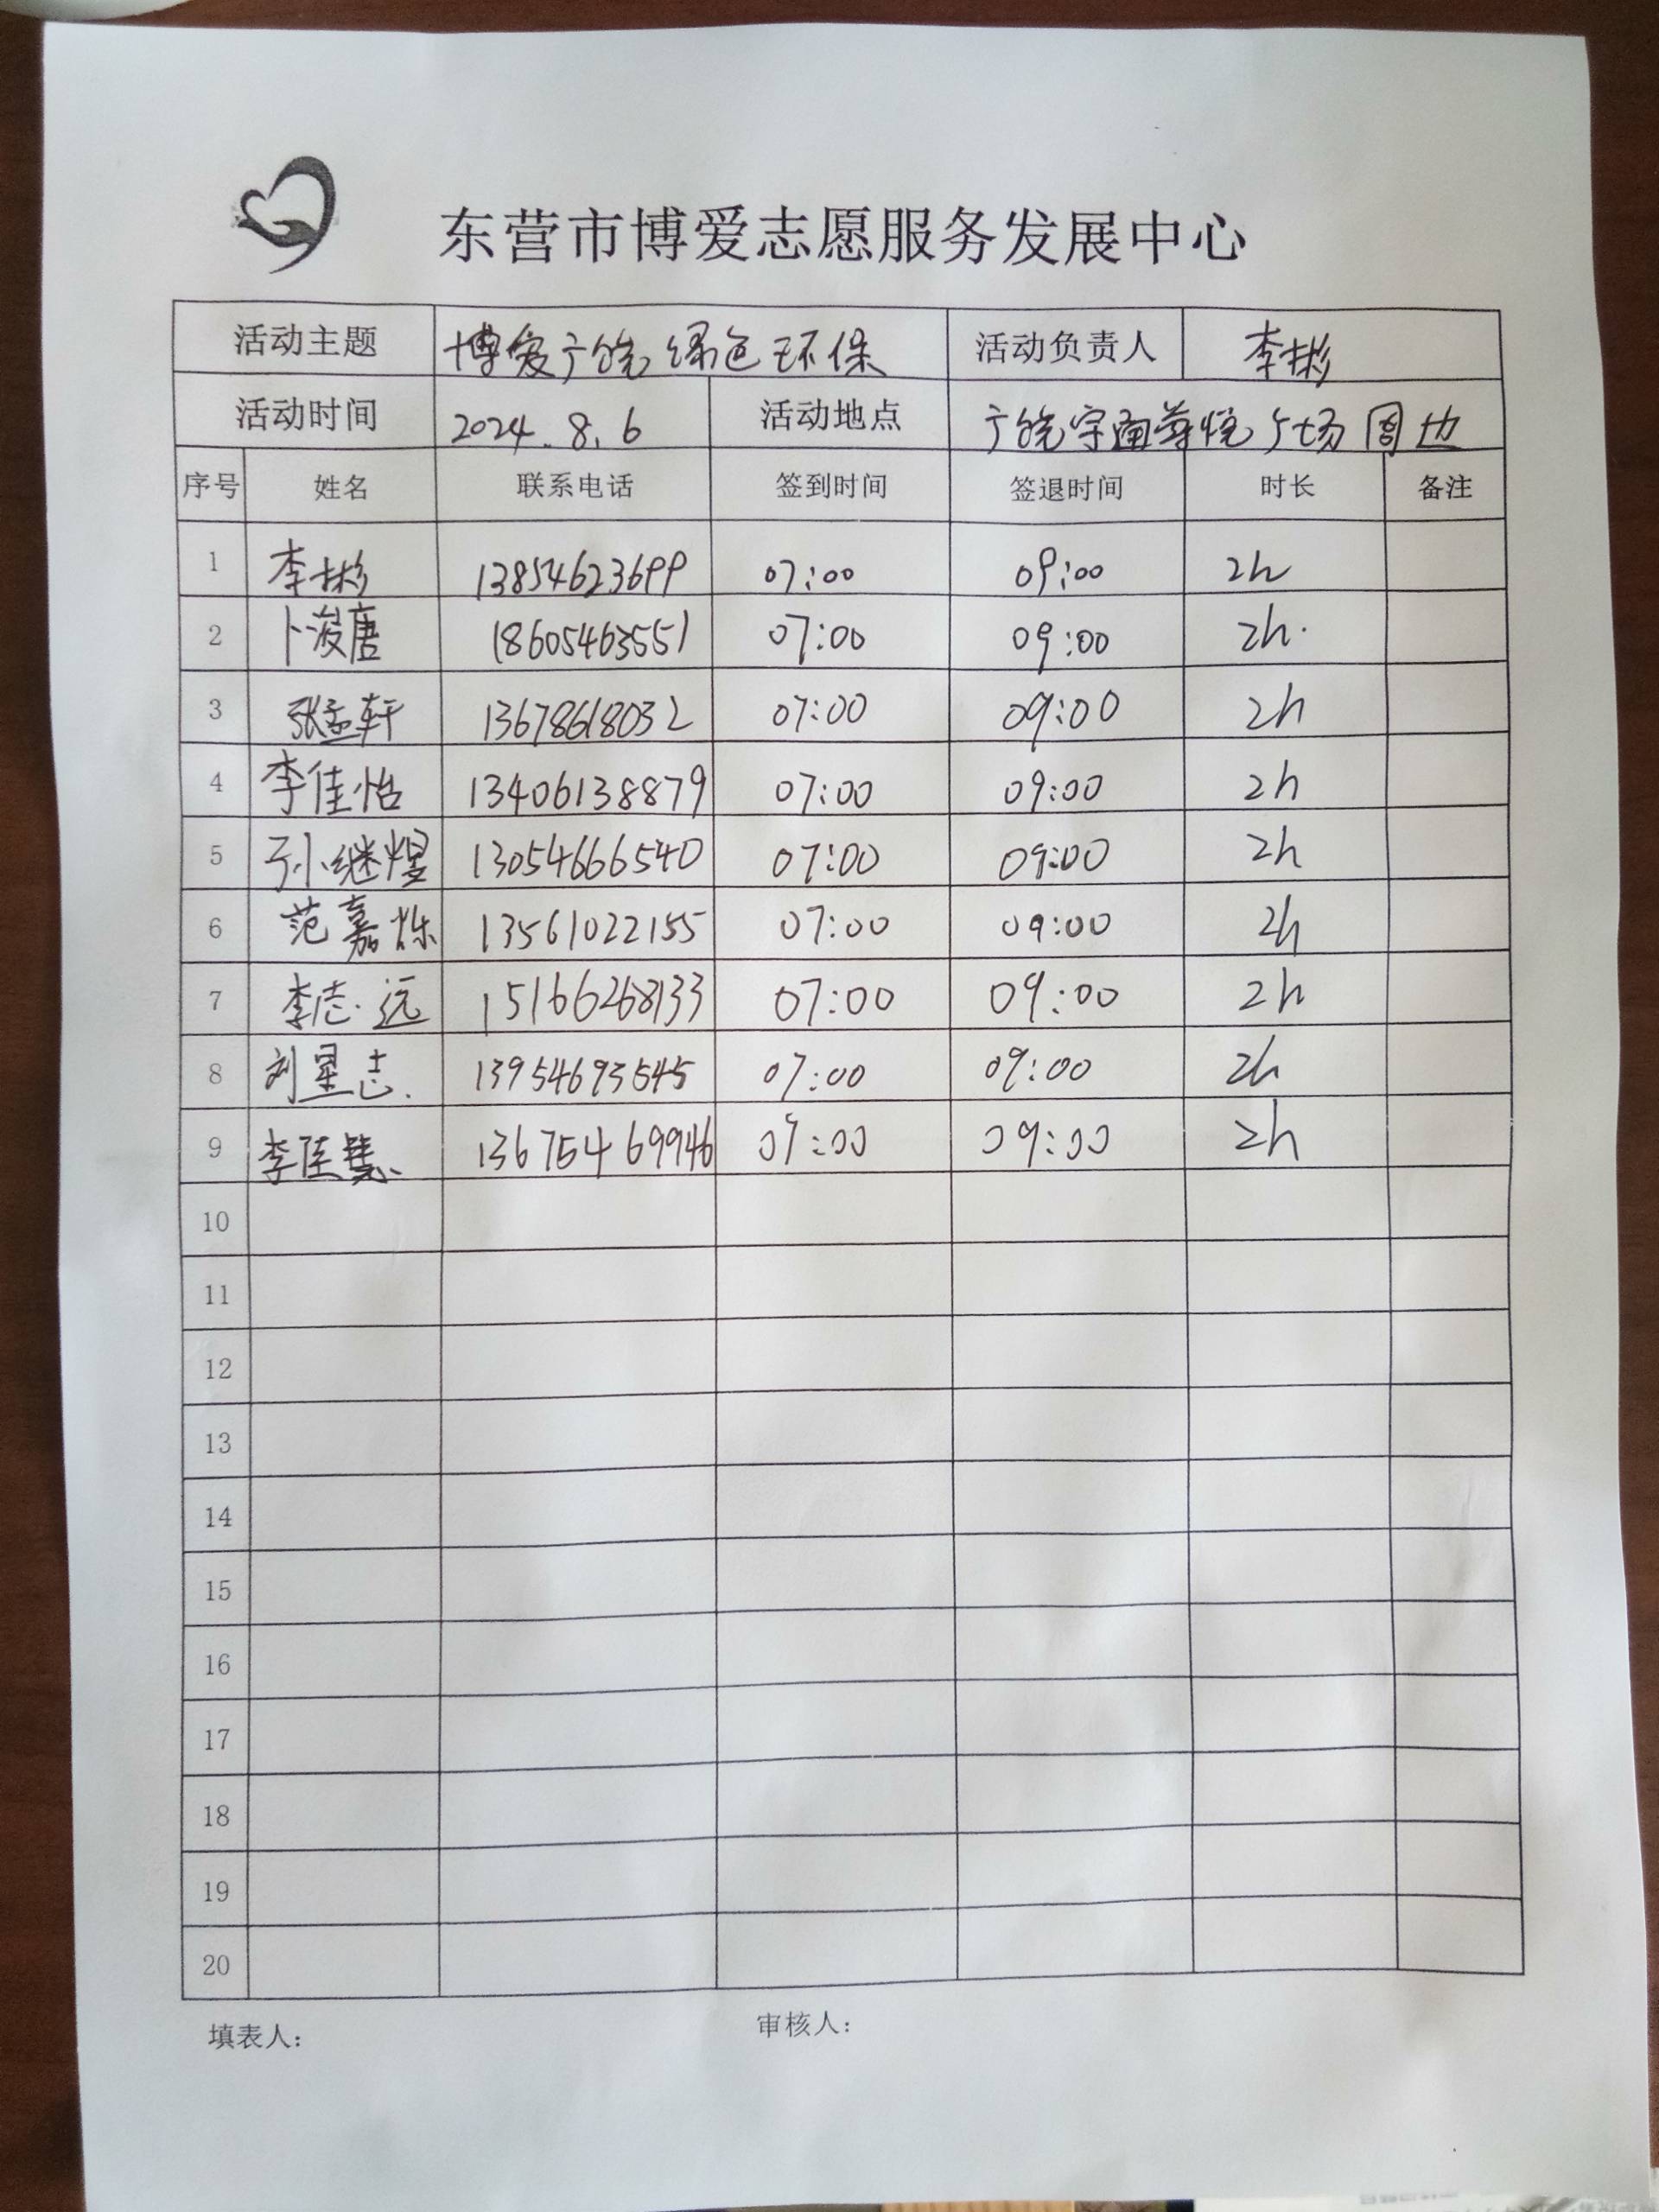 东营市博爱志愿服务发展中心
活动主题 博爱广饶 绿色环保 活动负责人 李彬
活动时间 2024.8.6 活动地点 广饶宇通尊悦广场周边
序号 姓名 联系电话 签到时间 签退时间 时长 备注
1 李彬 13854623699 07:00 09:00 2h
2 卜浚唐 18605463551 07:00 09:00 2h.
3 张孟轩 13678618032 07:00 09:00 2h
4 李佳怡 13406138879 07:00 09:00 2h
5 孙继煜 13054666540 07:00 09:00 2h
6 范嘉烁 13561022155 07:00 09:00 2h
7 李志远 15166268133 07:00 09:00 2h
8 刘星志. 13954693545 07:00 09:00 2h
9 李佳慧 13675469946 07:00 09:00 2h
10
11
12
13
14
15
16
17
18
19
20
填表人: 审核人: